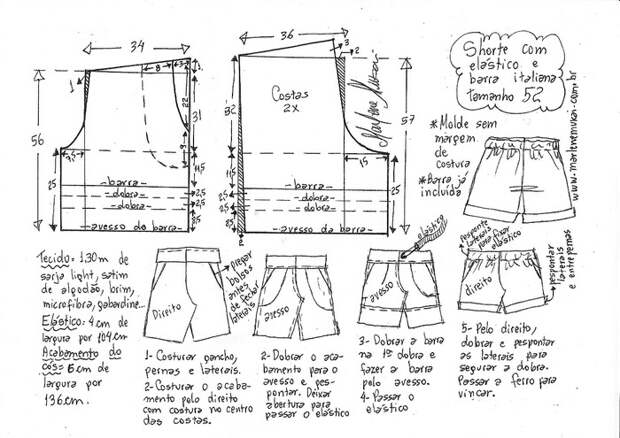 34
36
Shorte com
elástico e
barra italiana
tamanho 52
www.marlenemukai.com.br
*Molde sem
margem
de
costura
*Barra já
incluída
8
3
1
22
31
9
56
3,5
11,5
25
2,5
2,5
-barra-
-dobra-
-dobra-
-avesso da barra-
3
2
32
Costas
2x
Marlene Mukai
57
15
11,5
25
2,5
2,5
2
-barra-
-dobra-
-dobra-
-avesso da barra-
Tecido= 1.30m de
sarja light, satim
de algodão, brim,
microfibra, gabardine...
Elástico= 4cm de
largura por 104cm
Acabamento do
cós= 6cm de
largura por
136cm.
Direito
Prepar
bolsos
antes
de fechar
laterais
avesso
elástico
avesso
Pesponte
laterais
para fixar
elástico
direito
Pespontar
laterais
e entrepernas
1- Costurar gancho,
pernas e laterais.
2- Costurar o acaba-
mento pelo direito
com costura no centro
das costas.
2- Dobrar o aca-
bamento para o
avesso e pes-
pontar. Deixar
abertura para
passar o elástico
3- Dobrar a barra
na 1ª dobra e
fazer a barra
pelo avesso.
4- Passar o
elástico
5- Pelo direito,
dobrar e pespontar
as laterais para
segurar a dobra.
Passar a ferro para
vincar.